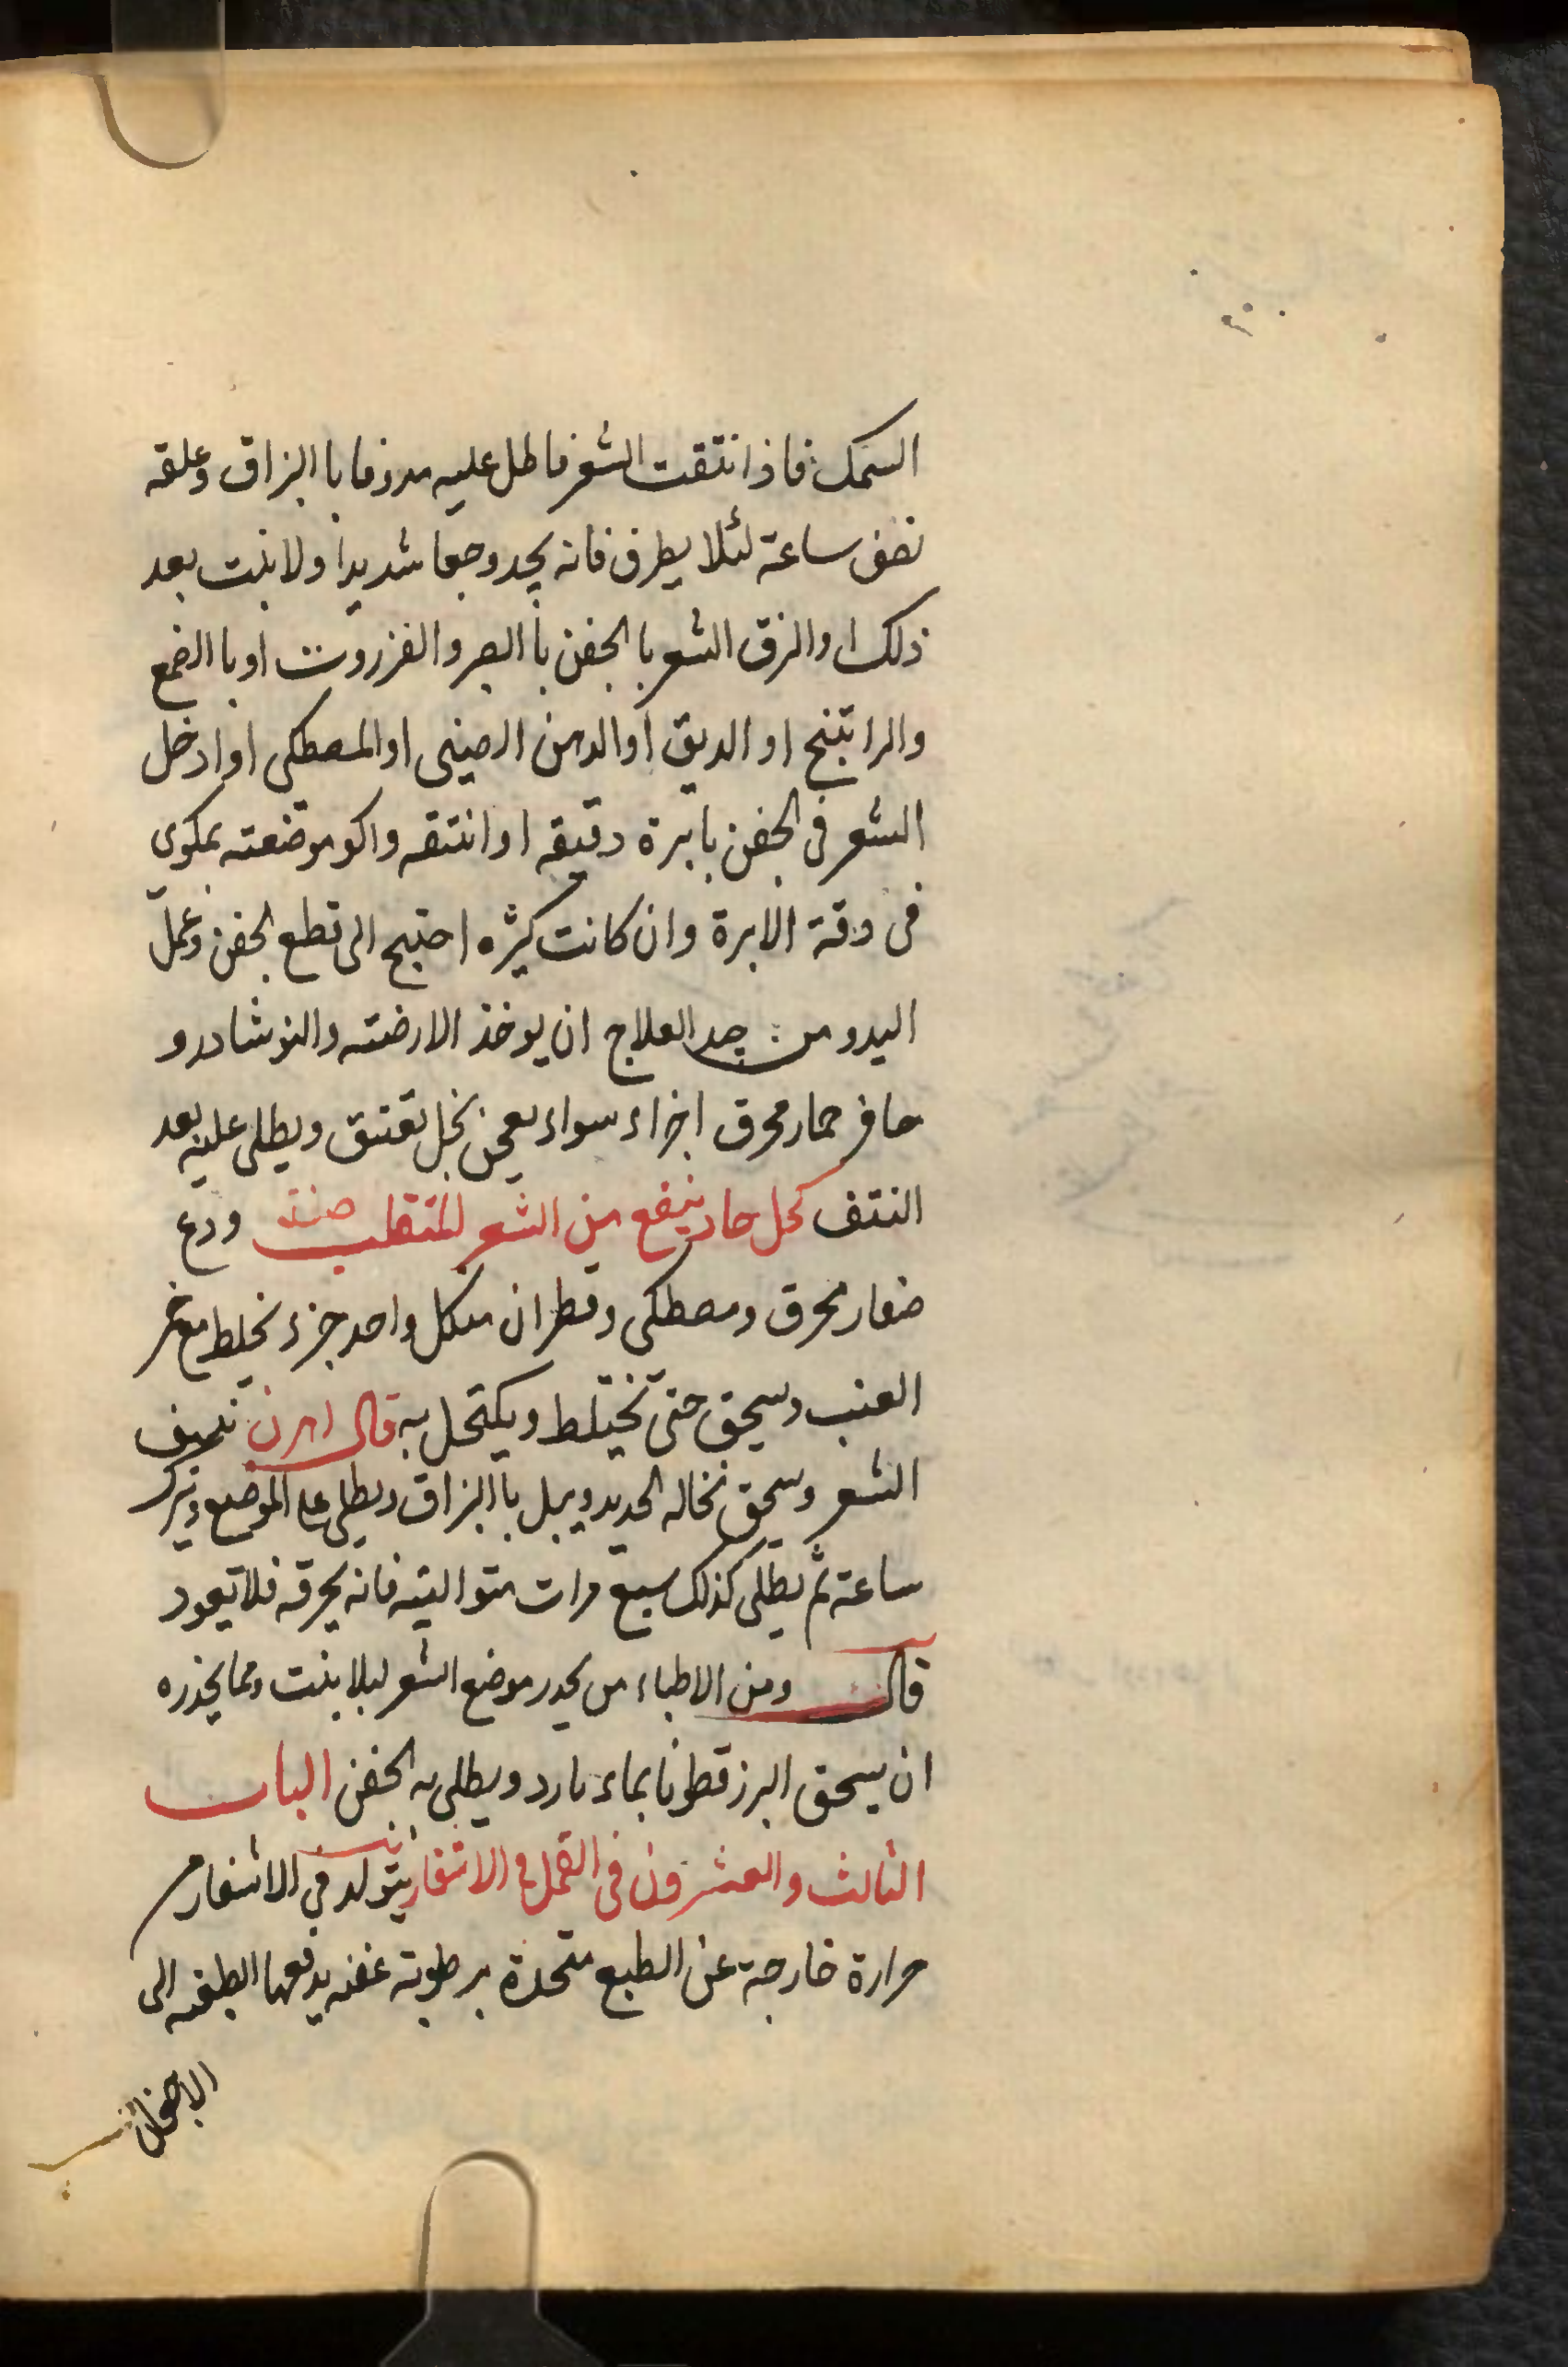 السمك فاذا نتقت الشعر فاطل عليه مدوفا با البزاق وعلقه
نصف ساعة لئلا يطرف فانه يجد وجعا شديدا ولا ينبت بعد
ذلك او الزق الشعر با الجفن با الصبر والغزروت او با الصمغ
والراتينج او الدبق او الدهن الصينى او المصطكى او ادخل
الشعر فى الجفن بابرة دقيقه او انتقه واكو موضعته بمكوى
فى دقة الابرة وان كانت كثيره احتيج الى قطع الجفن وعمل
اليد ومن جيد العلاج ان يوخذ الارضته والنوشادر و
حافر حمار محرق اجزاء سواء يعجن بخل ثقيف ويطلى عليه بعد
النتف كحل حاد ينفع من الشعر المتقلب صفته ودع
صغار محرق ومصطكى وقطران من كل واحد جزء يخلط مع خمر
العنب ويسحق حتى يختلط ويكتحل به قال اهرن تنتف
الشعر وسحق نخاله الحديد ويبل با البزاق ويطلى على الموضع ويترك
ساعة ثم يطلى كذلك سبع مرات متواليته فانه يحرقه فلا يعود
قال ومن الاطباء من يخدر موضع الشعر ليلا ينبت ومما يخدره
ان يسحق البزر قطونا بماء بارد ويطلى به الجفن الباب
الثالث والعشرون فى القمل فى الاشفار يتولد فى الاشفار من
حرارة خارجة عن الطبع متحدة برطوبة عفنه يدفعها الطبيعه الى
الاجفان